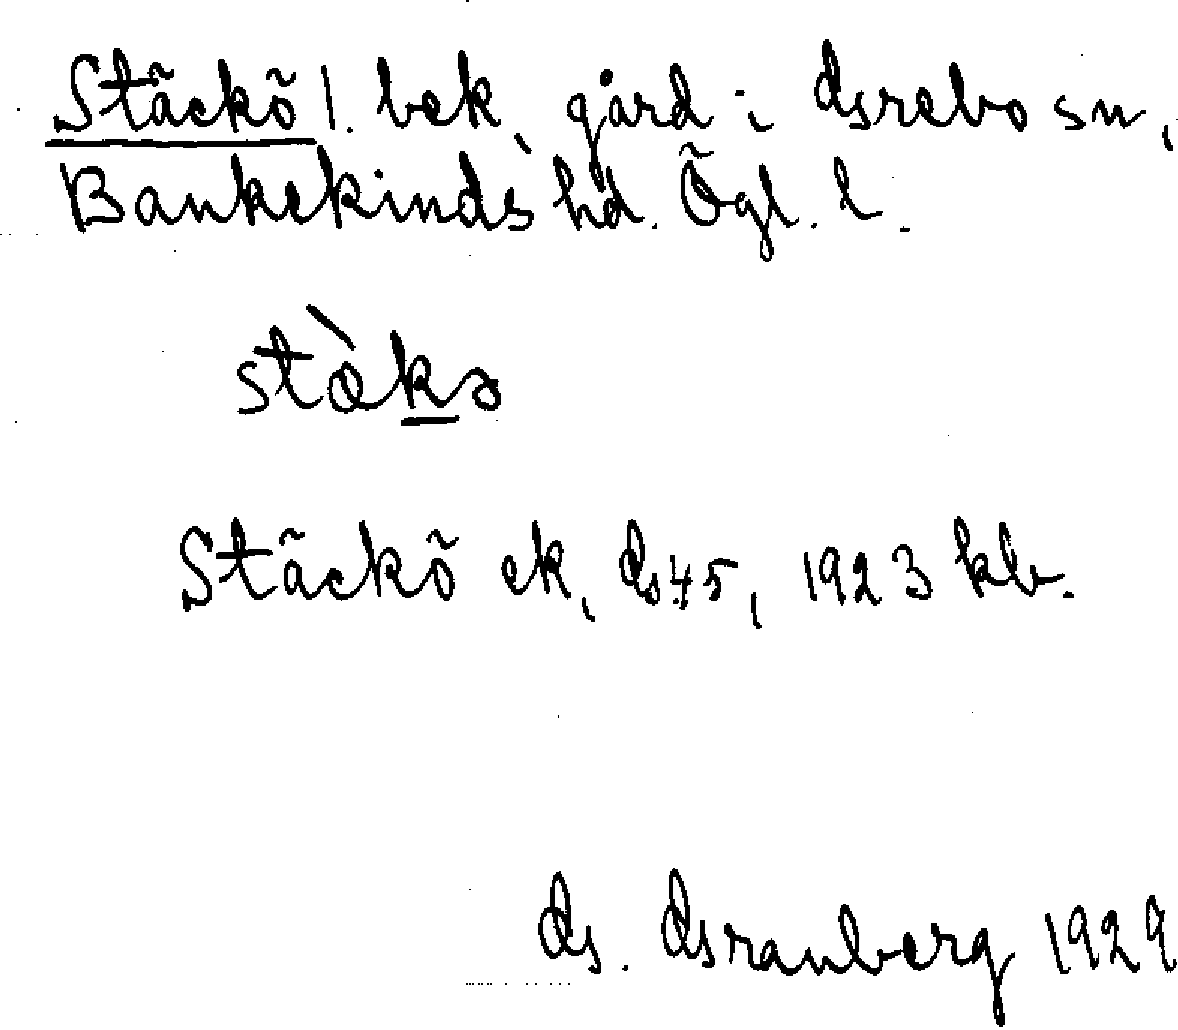 Stäckö l. bek, gård i Grebo sn,
Bankekinds hd. Ögl. l.
stæ̀kə
Stäckö ek, G 45, 1923 kb.
G. Granberg 1929